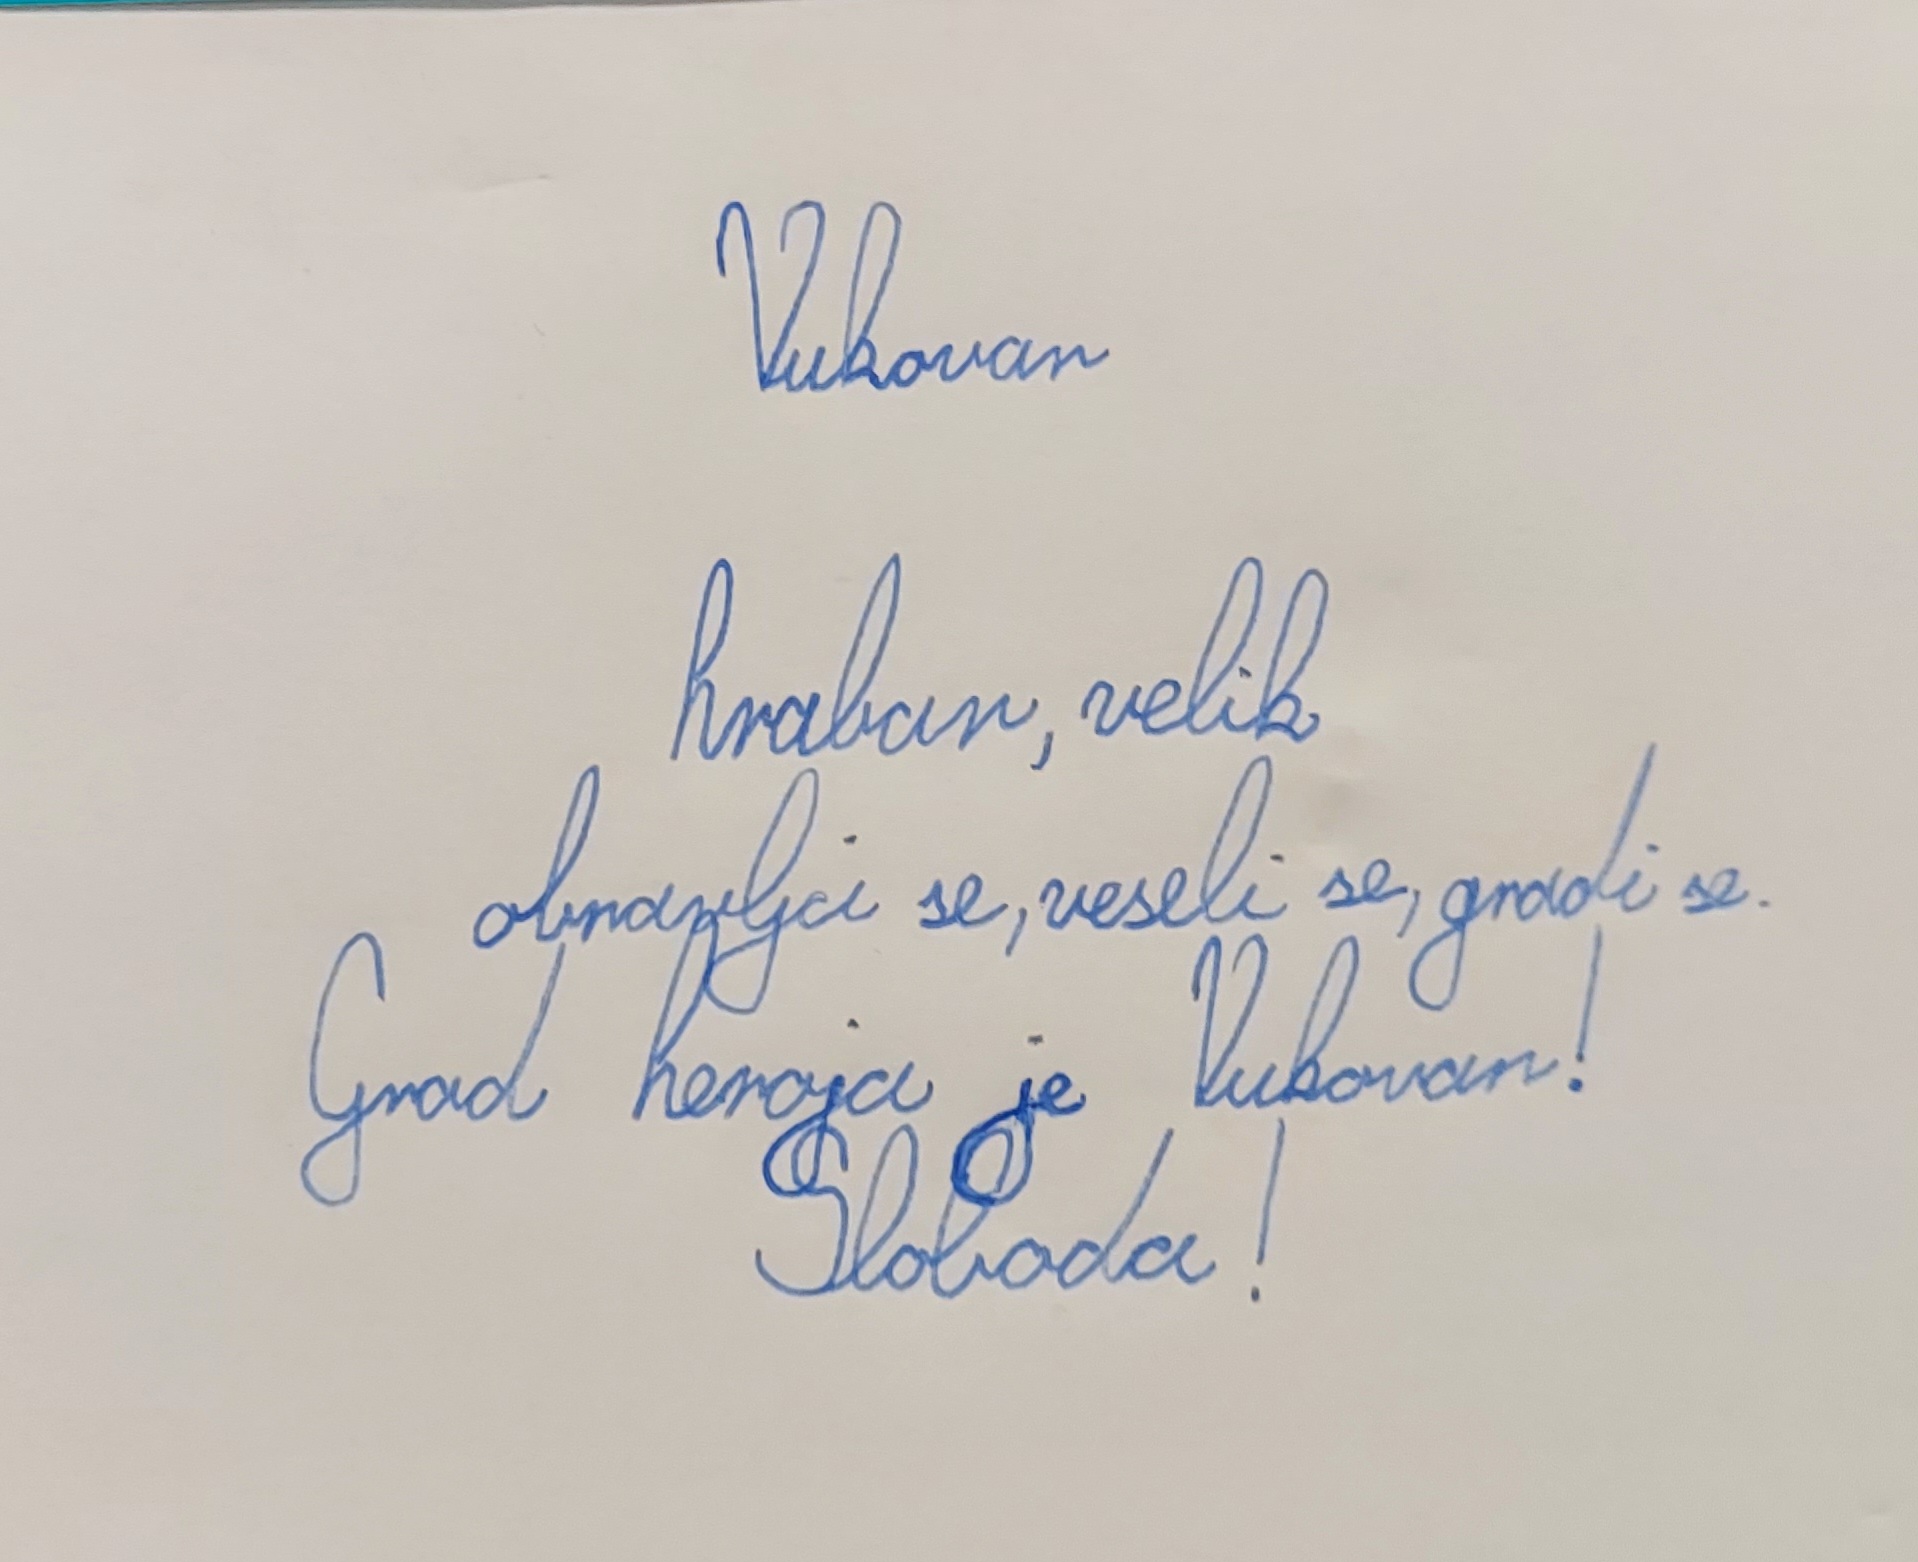 Vukovar
hrabar, velik
obnavlja se, veseli se, gradi se.
Grad heroja je Vukovar!
Sloboda!